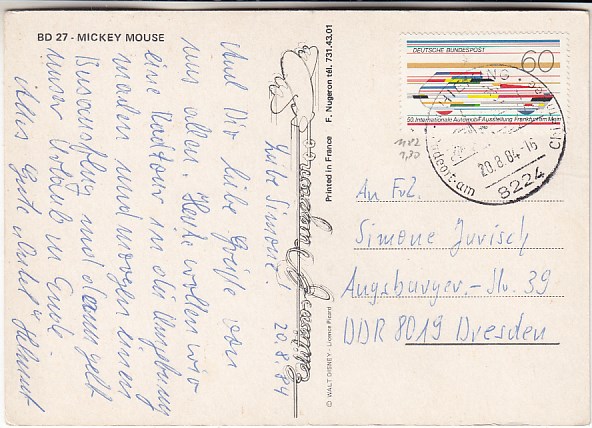 BD 27 - MICKEY MOUSE
Liebe Simone! 20.8.84
Und Dir liebe Grüße von
uns allen. Heute wollen wir
eine Radtour in die Umgebung
machen und morgen einen
Busausflug und dann geht
unser Urlaub zu Ende
Alles Gute Helmut
Editions F. Nugeron
Printed in France F. Nugeron tél. 731.43.01
© WALT DISNEY - Licence Picard
DEUTSCHE BUNDESPOST
60
50. Internationale Automobil-Ausstellung Frankfurt am Main
20.8.84-16
8224
1182
1,30
An Frl.
Simone Jurisch
Augsburger-Str. 39
DDR 8019 Dresden